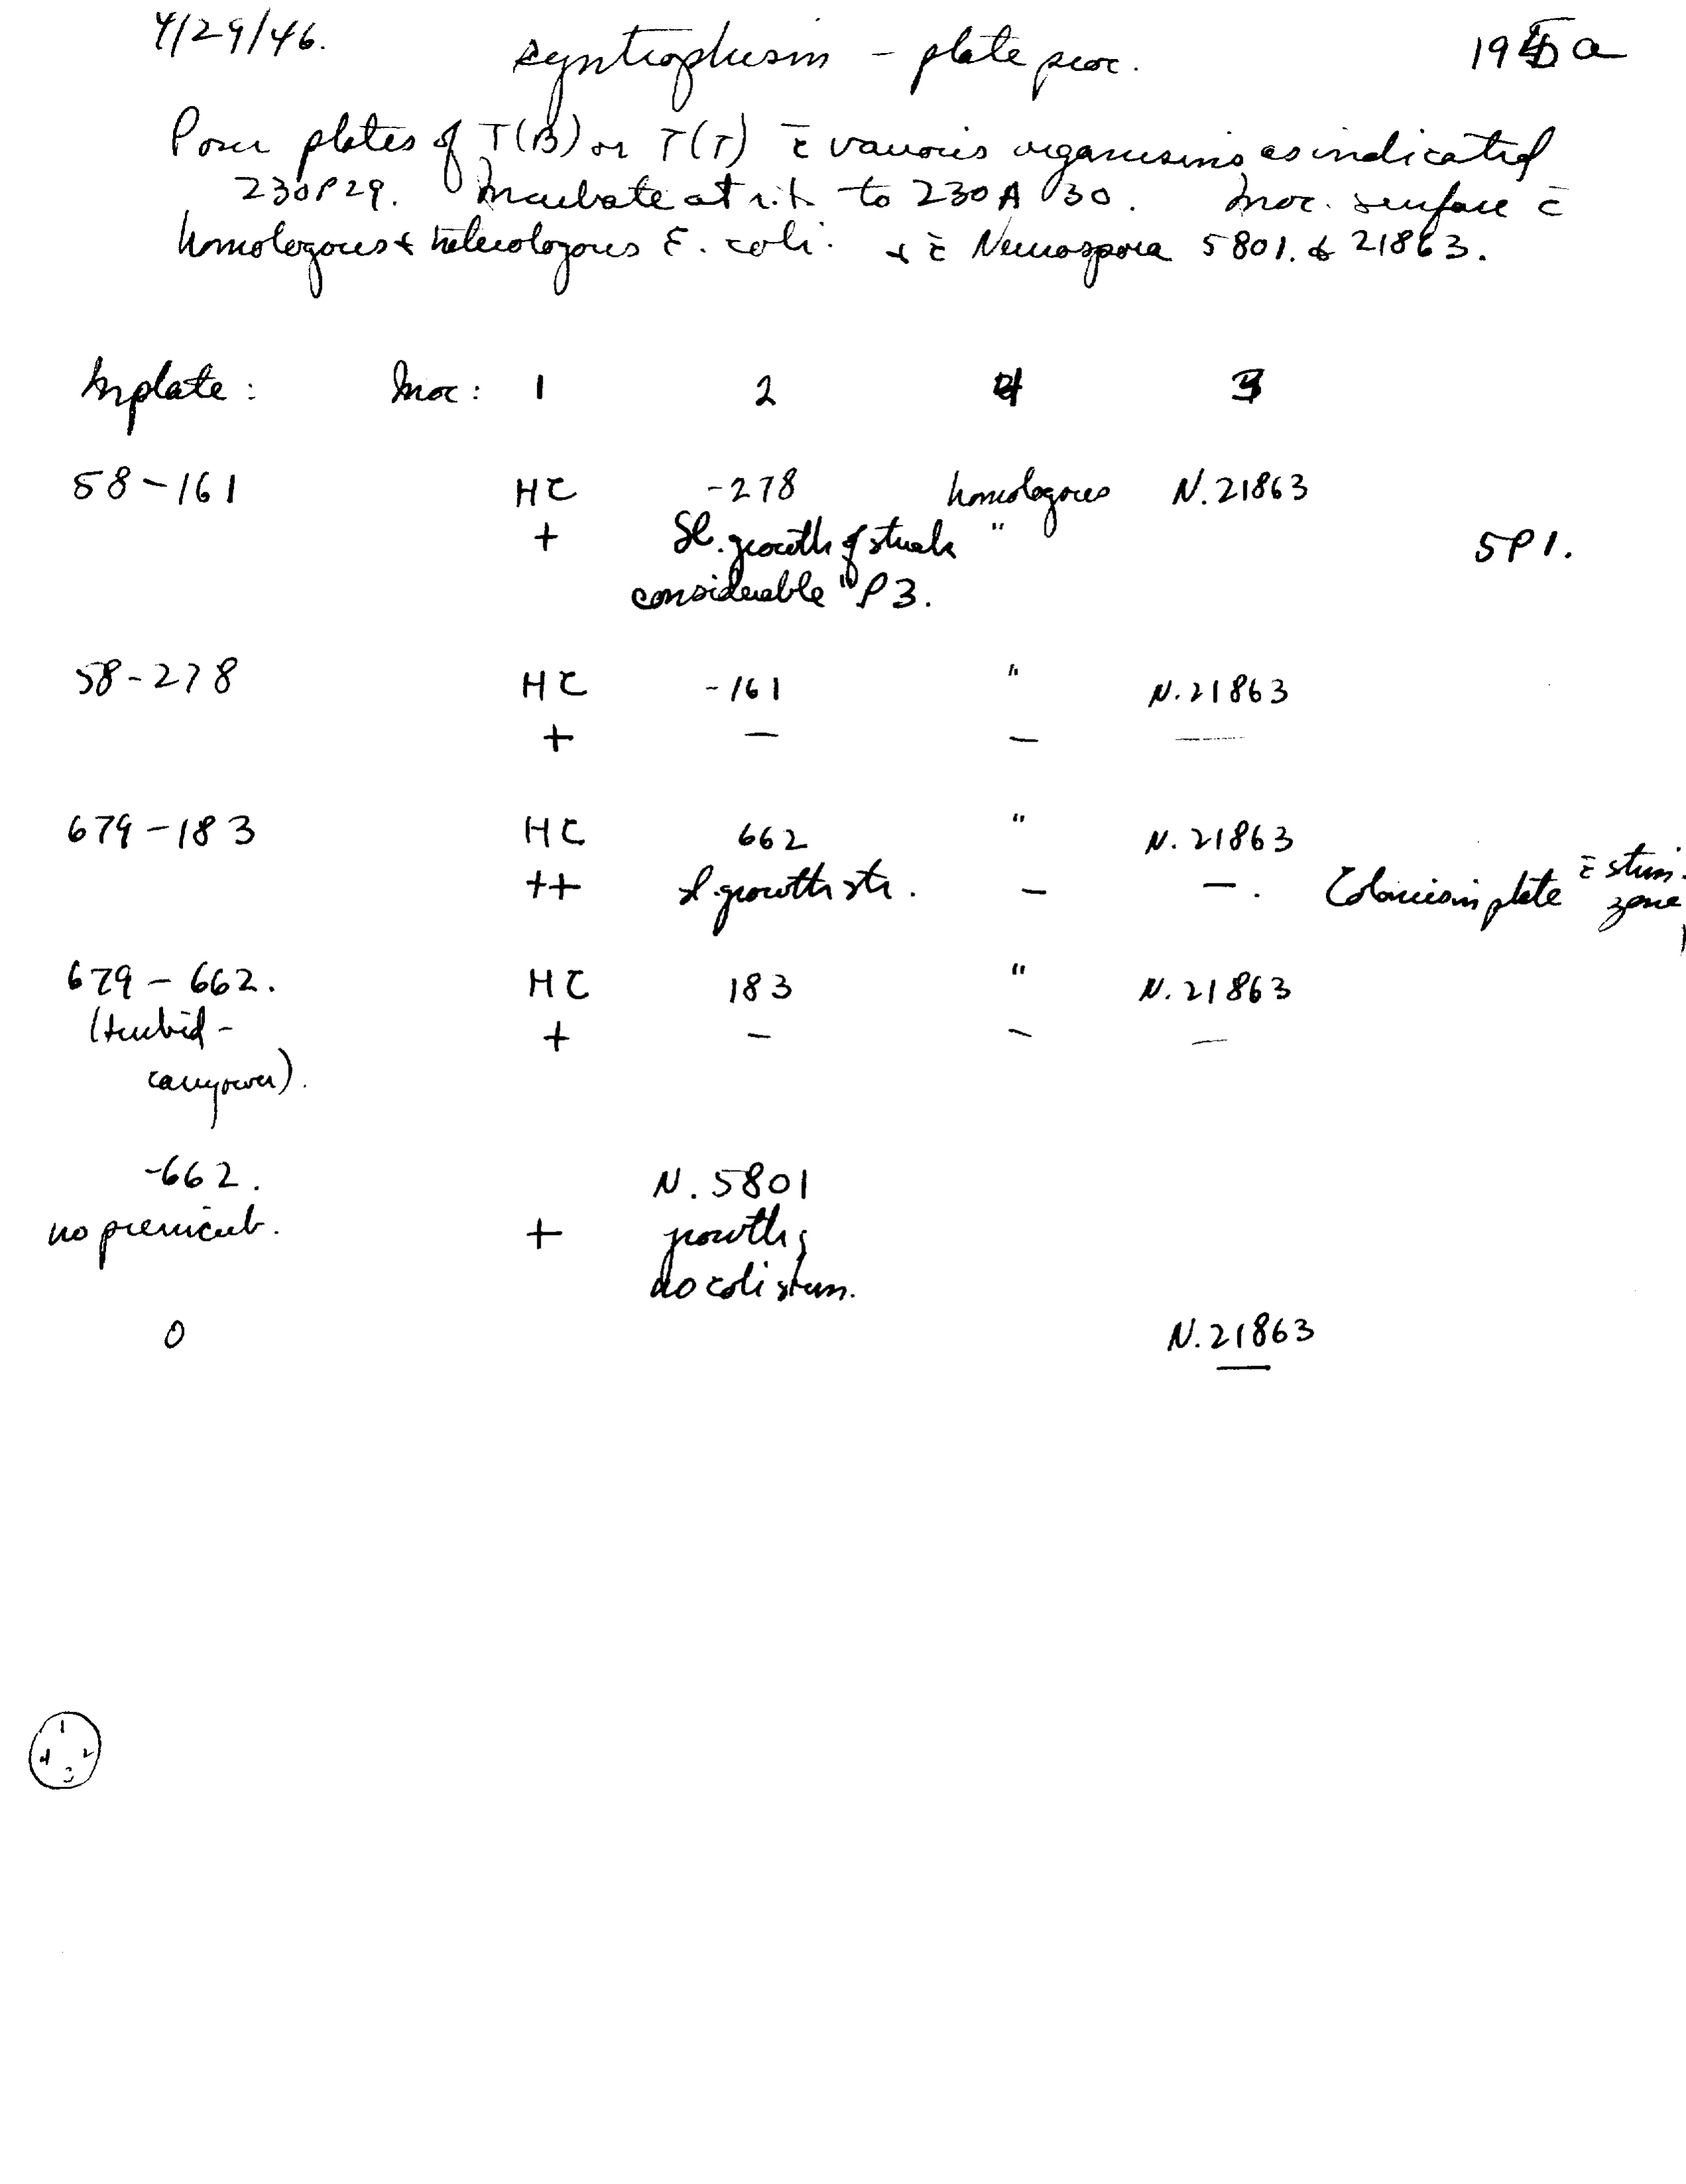 4/29/46. syntrophism – plate proc. 195 a
Pour plates of T(B) or T(T) c̄ various organisms as indicated
230P29. Incubate at r.t. to 230A 30. Inoc. surface c̄
homologous & heterologous E. coli. & c̄ Neurospora 5801. & 21863.
In plate: Inoc: 1 2 4 3
58-161 HC -278 homologous N. 21863
+ Sl. growth of streak " 5P1.
considerable " P3.
58-278 HC -161 " N. 21863
+ — — —
679-183 HC 662 " N. 21863
++ sl. growth str. — —. Colonies in plate c̄ stim.
zone
679-662. HC 183 " N. 21863
(turbid- + — — —
carryover).
-662. N. 5801
no preincub. + growth;
no coli stim.
0 N. 21863
—
1
4 2
3